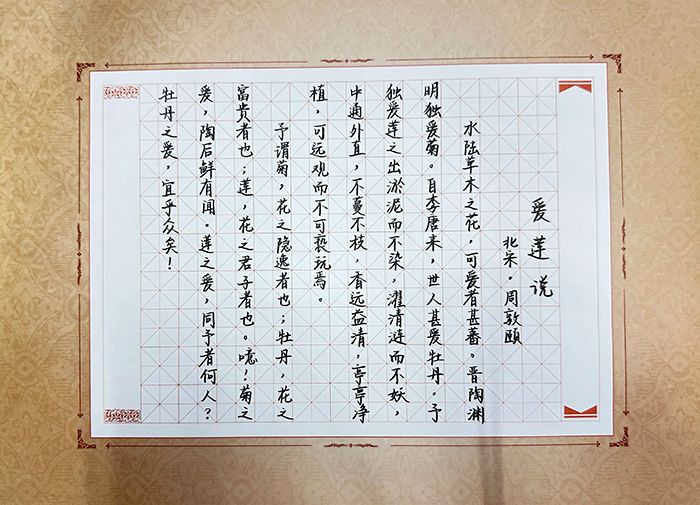 爱莲说
北宋·周敦颐
水陆草木之花，可爱者甚蕃。晋陶渊
明独爱菊。自李唐来，世人甚爱牡丹。予
独爱莲之出淤泥而不染，濯清涟而不妖，
中通外直，不蔓不枝，香远益清，亭亭净
植，可远观而不可亵玩焉。
予谓菊，花之隐逸者也；牡丹，花之
富贵者也；莲，花之君子者也。噫！菊之
爱，陶后鲜有闻。莲之爱，同予者何人？
牡丹之爱，宜乎众矣！